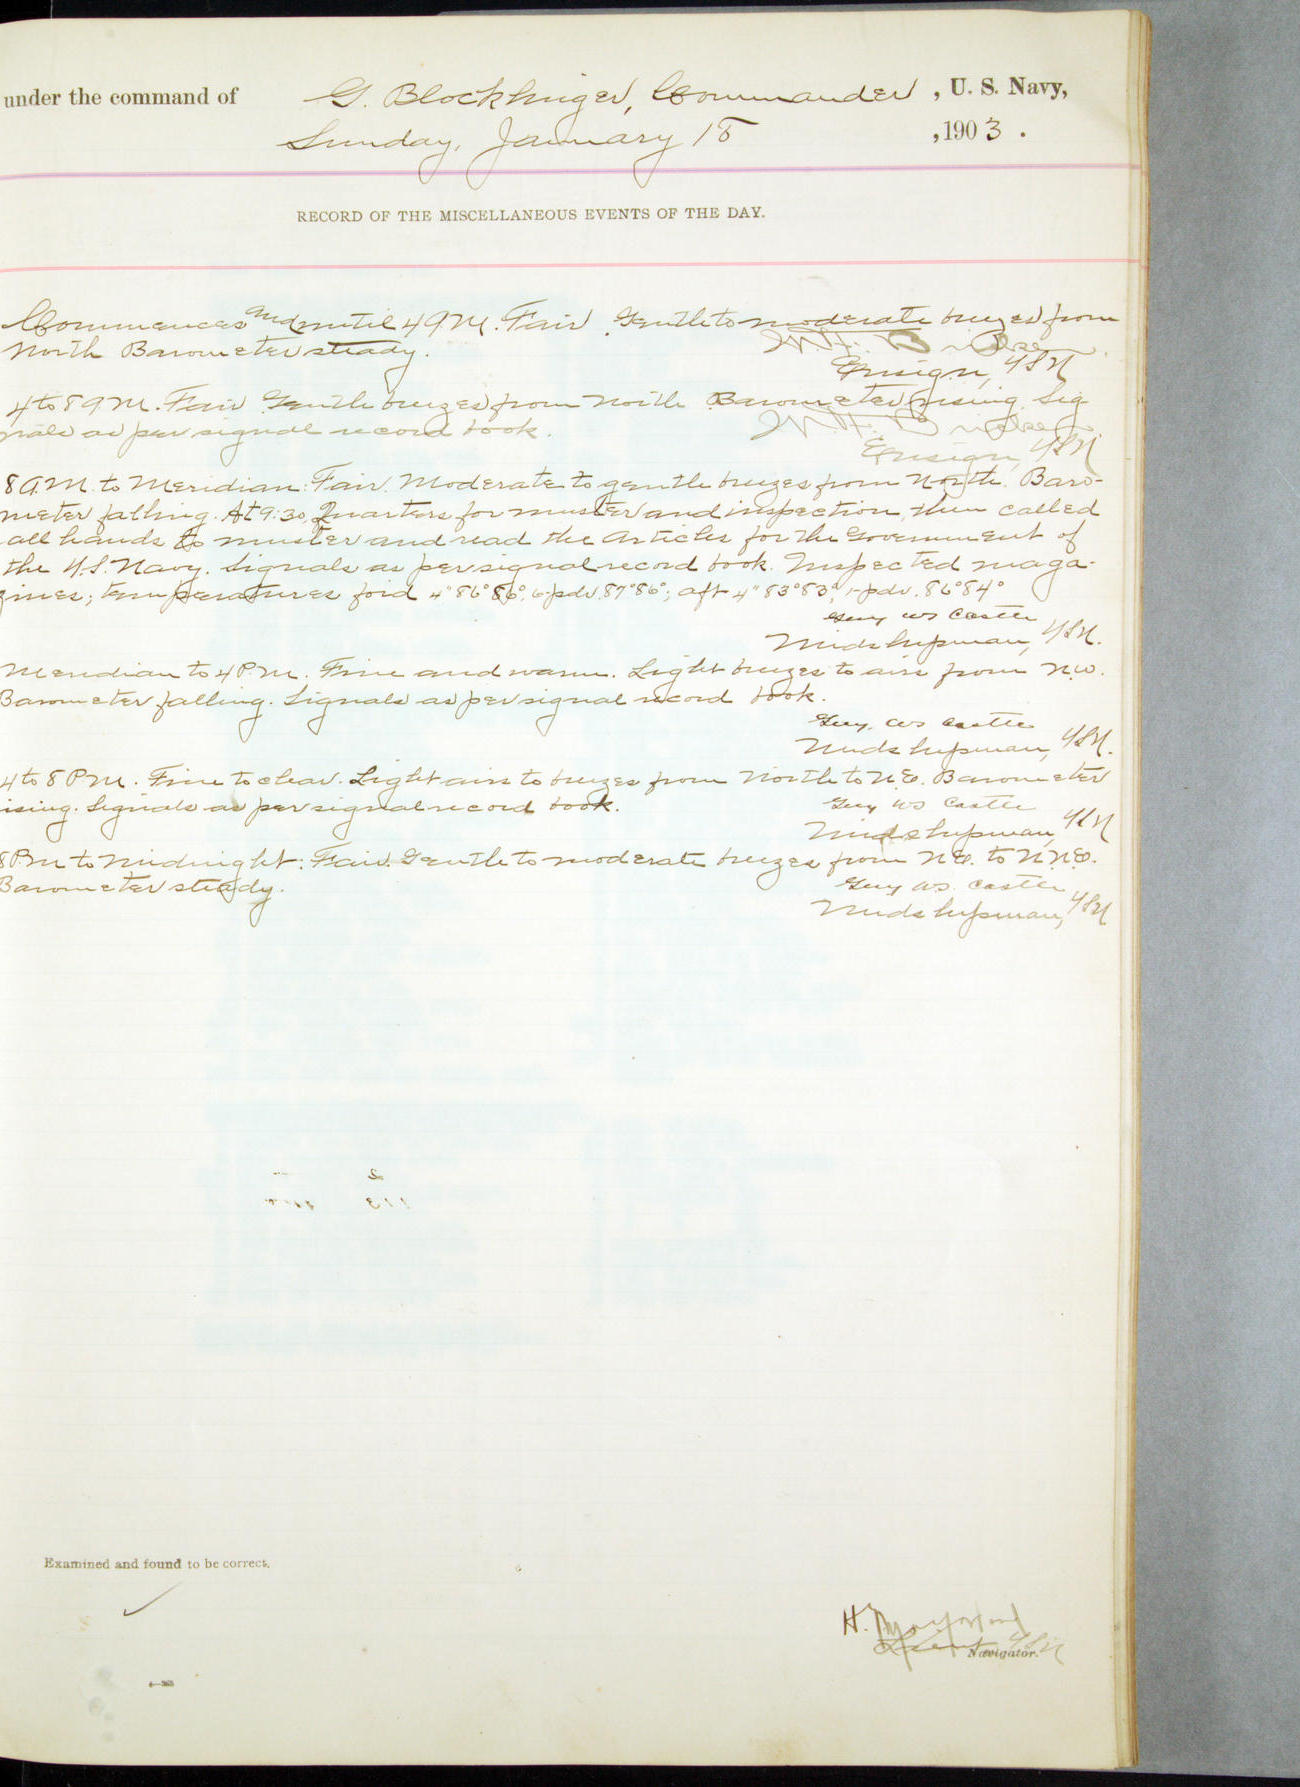 under the command of G. Blocklinger, Commander, U. S. Navy,
Sunday, January 18, 1903.
RECORD OF THE MISCELLANEOUS EVENTS OF THE DAY.
Commences and until 4 A.M. Fair Gentle to moderate breezes from
North Barometer steady.
Ensign, USN
4 to 8 A.M. Fair Gentle breezes from North Barometer rising. Sig
nals as per signal record book.
Ensign, USN
8 A.M. to Meridian: Fair. Moderate to gentle breezes from North. Baro-
meter falling. At 9:30, Quarters for muster and inspection, then called
all hands to muster and read the Articles for the Government of
the U.S. Navy. Signals as per signal record book. Inspected maga-
zines; temperatures for'd 4" 86° 86°, 6-pdr. 87° 86°; aft 4" 83° 83°, 1-pdr. 86° 84°
Guy W S Castle
Midshipman, USN.
Meridian to 4 P.M. Fine and warm. Light breezes to airs from N.W.
Barometer falling. Signals as per signal record book.
Guy W S Castle
Midshipman, USN.
4 to 8 P.M. Fine to clear. Light airs to breezes from North to N.E. Barometer
ising. Signals as per signal record book.
Guy W S Castle
Midshipman, USN
8 P.M to Midnight: Fair. Gentle to moderate breezes from N.E. to N.N.E.
Barometer steady.
Guy W.S. Castle
Midshipman, USN
Examined and found to be correct.
H.
Lieut USN
Navigator.